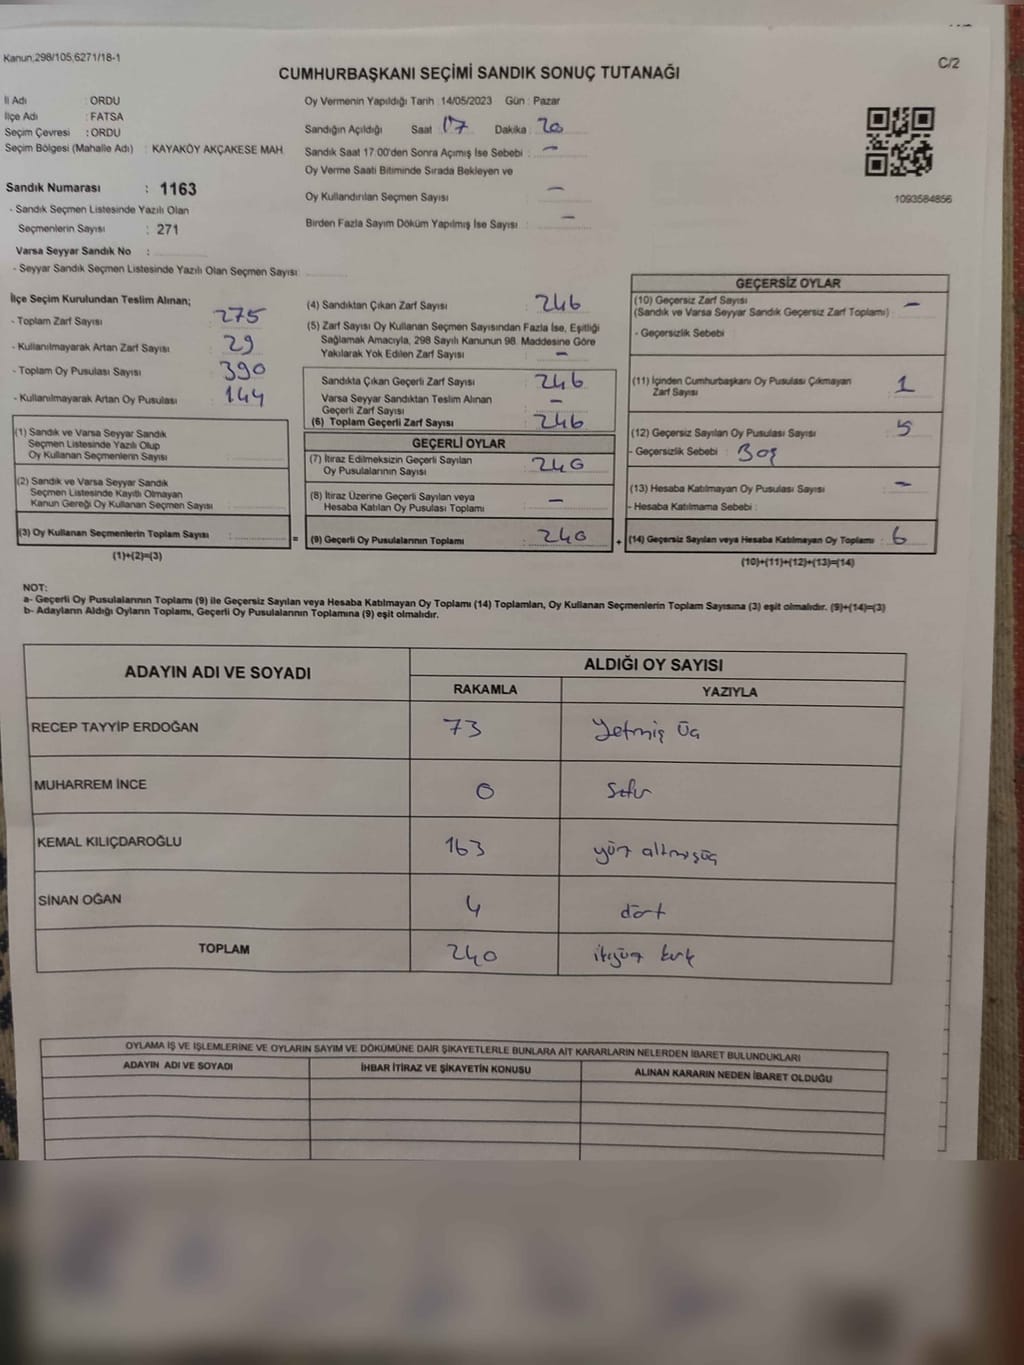 Kanun;298/105;6271/18-1
C/2
CUMHURBAŞKANI SEÇİMİ SANDIK SONUÇ TUTANAĞI
İl Adı : ORDU
İlçe Adı : FATSA
Seçim Çevresi : ORDU
Seçim Bölgesi (Mahalle Adı) : KAYAKÖY AKÇAKESE MAH
Sandık Numarası : 1163
- Sandık Seçmen Listesinde Yazılı Olan
Seçmenlerin Sayısı : 271
Varsa Seyyar Sandık No :
- Seyyar Sandık Seçmen Listesinde Yazılı Olan Seçmen Sayısı
Oy Vermenin Yapıldığı Tarih : 14/05/2023 Gün : Pazar
Sandığın Açıldığı Saat 17 Dakika : 20
Sandık Saat 17:00'den Sonra Açımış İse Sebebi : -
Oy Verme Saati Bitiminde Sırada Bekleyen ve
Oy Kullandırılan Seçmen Sayısı -
Birden Fazla Sayım Döküm Yapılmış İse Sayısı : -
1093584856
İlçe Seçim Kurulundan Teslim Alınan;
- Toplam Zarf Sayısı : 275
- Kullanılmayarak Artan Zarf Sayısı : 29
- Toplam Oy Pusulası Sayısı : 390
- Kullanılmayarak Artan Oy Pusulası : 144
(1) Sandık ve Varsa Seyyar Sandık
Seçmen Listesinde Yazılı Olup
Oy Kullanan Seçmenlerin Sayısı
(2) Sandık ve Varsa Seyyar Sandık
Seçmen Listesinde Kayıtlı Olmayan
Kanun Gereği Oy Kullanan Seçmen Sayısı
(3) Oy Kullanan Seçmenlerin Toplam Sayısı :
=
(1)+(2)=(3)
(4) Sandıktan Çıkan Zarf Sayısı : 246
(5) Zarf Sayısı Oy Kullanan Seçmen Sayısından Fazla İse, Eşitliği
Sağlamak Amacıyla, 298 Sayılı Kanunun 98. Maddesine Göre
Yakılarak Yok Edilen Zarf Sayısı : -
Sandıkta Çıkan Geçerli Zarf Sayısı : 246
Varsa Seyyar Sandıktan Teslim Alınan
Geçerli Zarf Sayısı : -
(6) Toplam Geçerli Zarf Sayısı : 246
GEÇERLİ OYLAR
(7) İtiraz Edilmeksizin Geçerli Sayılan
Oy Pusulalarının Sayısı : 240
(8) İtiraz Üzerine Geçerli Sayılan veya
Hesaba Katılan Oy Pusulası Toplamı : -
(9) Geçerli Oy Pusulalarının Toplamı : 240
+
GEÇERSİZ OYLAR
(10) Geçersiz Zarf Sayısı
(Sandık ve Varsa Seyyar Sandık Geçersiz Zarf Toplamı) : -
- Geçersizlik Sebebi :
(11) İçinden Cumhurbaşkanı Oy Pusulası Çıkmayan
Zarf Sayısı : 1
(12) Geçersiz Sayılan Oy Pusulası Sayısı : 5
- Geçersizlik Sebebi : Boş
(13) Hesaba Katılmayan Oy Pusulası Sayısı : -
- Hesaba Katılmama Sebebi :
(14) Geçersiz Sayılan veya Hesaba Katılmayan Oy Toplamı : 6
(10)+(11)+(12)+(13)=(14)
NOT:
a- Geçerli Oy Pusulalarının Toplamı (9) ile Geçersiz Sayılan veya Hesaba Katılmayan Oy Toplamı (14) Toplamları, Oy Kullanan Seçmenlerin Toplam Sayısına (3) eşit olmalıdır. (9)+(14)=(3)
b- Adayların Aldığı Oyların Toplamı, Geçerli Oy Pusulalarının Toplamına (9) eşit olmalıdır.
ADAYIN ADI VE SOYADI
ALDIĞI OY SAYISI
RAKAMLA YAZIYLA
RECEP TAYYİP ERDOĞAN 73 Yetmiş üç
MUHARREM İNCE 0 Sıfır
KEMAL KILIÇDAROĞLU 163 yüz altmışüç
SİNAN OĞAN 4 dört
TOPLAM 240 ikiyüz kırk
OYLAMA İŞ VE İŞLEMLERİNE VE OYLARIN SAYIM VE DÖKÜMÜNE DAİR ŞİKAYETLERLE BUNLARA AİT KARARLARIN NELERDEN İBARET BULUNDUKLARI
ADAYIN ADI VE SOYADI İHBAR İTİRAZ VE ŞİKAYETİN KONUSU ALINAN KARARIN NEDEN İBARET OLDUĞU